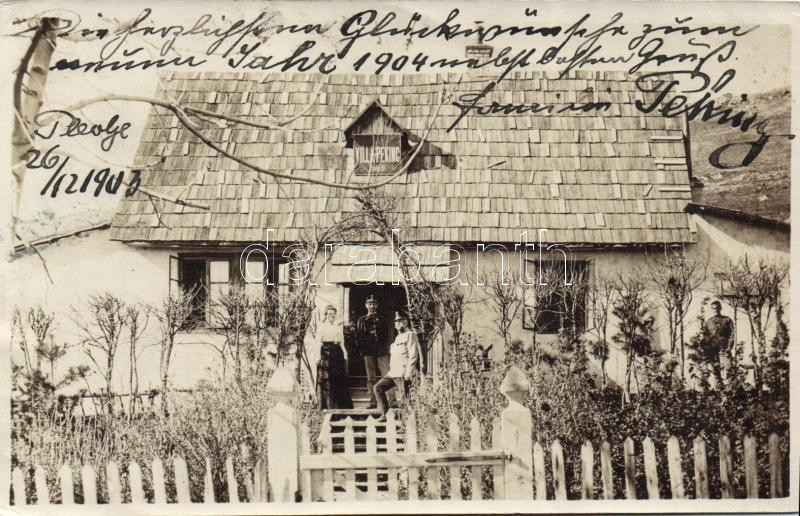 Die herzlichsten Glückwünsche zum
neuen Jahr 1904 nebst besten Gruß
Familie Peking
Plevlje
26/12 1903
VILLA PEKING
darabanth